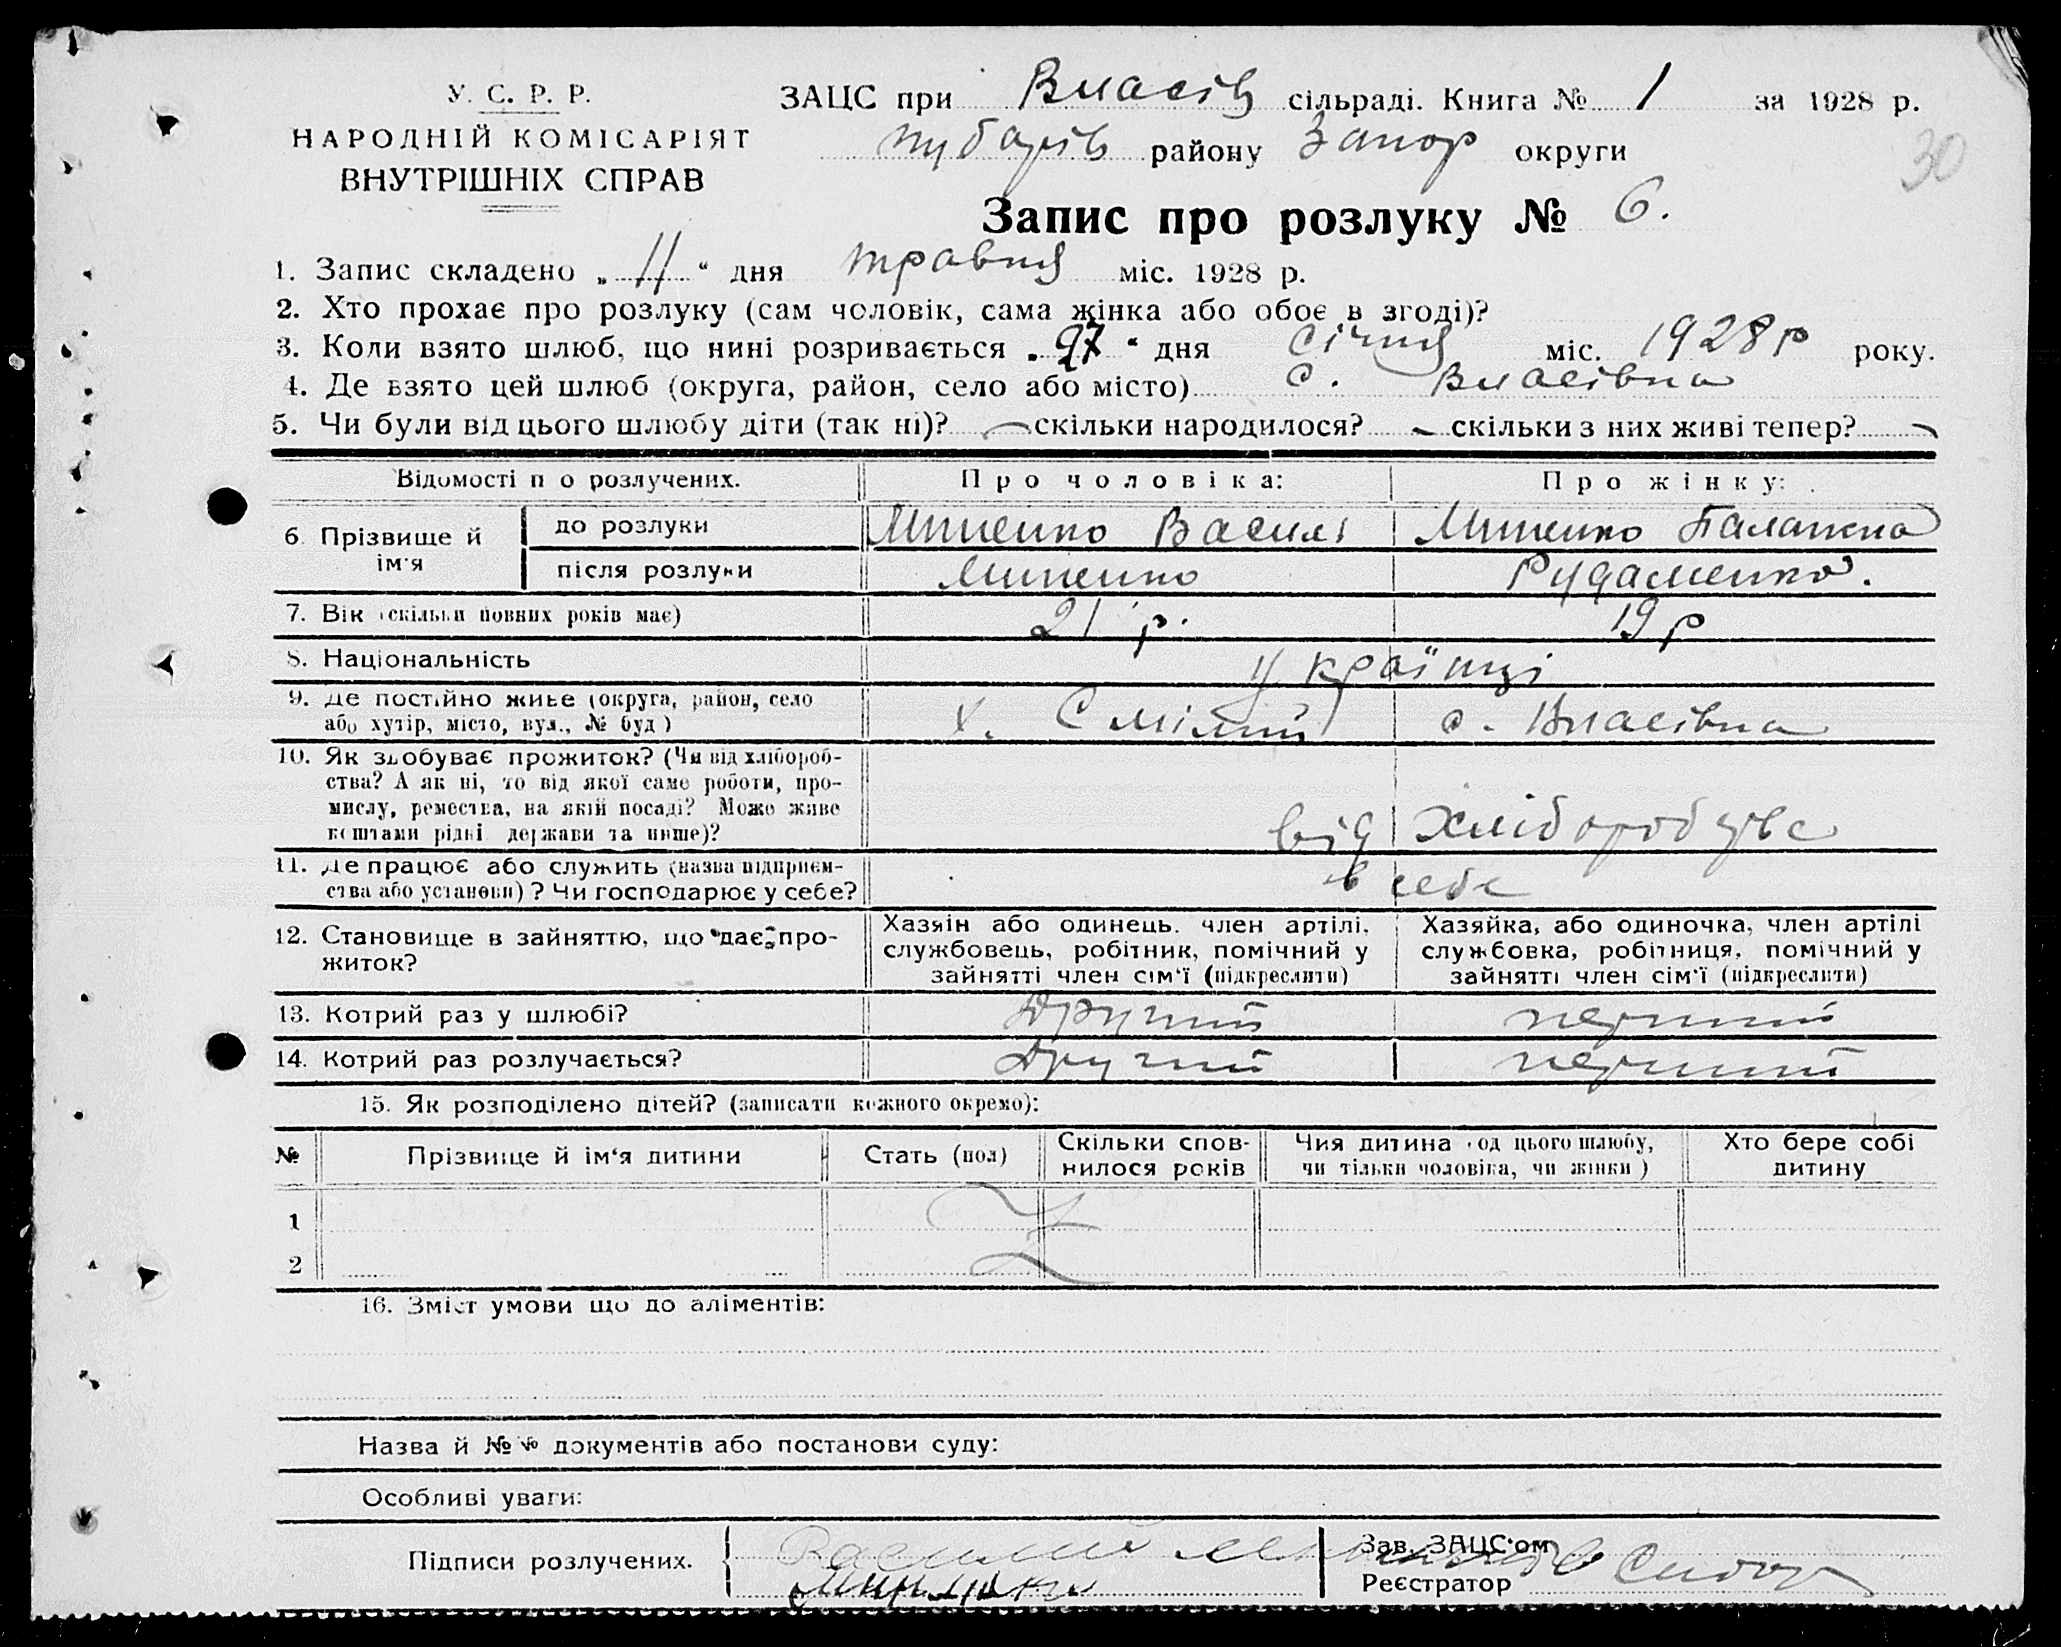 У. С. Р. Р.
НАРОДНІЙ КОМІСАРІЯТ
ВНУТРІШНІХ СПРАВ
ЗАЦС при Власів сільраді. Книга № 1 за 1928 р.
району Запор округи
30
Запис про розлуку № 6.
1. Запис складено „ 11 “ дня травня міс. 1928 р.
2. Хто прохає про розлуку (сам чоловік, сама жінка або обоє в згоді)?
3. Коли взято шлюб, що нині розривається „ 27 “ дня січня міс. 1928 р року.
4. Де взято цей шлюб (округа, район, село або місто) с. Власівка
5. Чи були від цього шлюбу діти (так ні)? — скільки народилося? — скільки з них живі тепер? —
Відомості п о розлучених. Про чоловіка: Про жінку:
6. Прізвище й ім'я
до розлуки Василь Палажка
після розлуки
7. Вік (скільки повних років має) 21 р. 19 р
8. Національність українці
9. Де постійно живе (округа, район, село
або хутір, місто, вул., № буд) х. Смілий с. Власівка
10. Як здобуває прожиток? (Чи від хлібороб-
ства? А як ні, то від якої саме роботи, про-
мислу, ремества, на якій посаді? Може живе
коштами рідні держави та инше)? від хліборобства
11. Де працює або служить (назва підприєм-
ства або установи)? Чи господарює у себе? в себе
12. Становище в зайняттю, що дає про-
житок?
Хазяін або одинець. член артілі,
службовець, робітник, помічний у
зайнятті член сім'ї (підкреслити)
Хазяйка, або одиночка, член артілі
службовка, робітниця, помічний у
зайнятті член сім'ї (підкреслити)
13. Котрий раз у шлюбі? другий перший
14. Котрий раз розлучається? другий перший
15. Як розподілено дітей? (записати кожного окремо):
№ Прізвище й ім'я дитини Стать (пол) Скільки спов-
нилося років Чия дитина (од цього шлюбу,
чи тільки чоловіка, чи жінки) Хто бере собі
дитину
1
2
16. Зміст умови що до аліментів:
Назва й №№ документів або постанови суду:
Особливі уваги:
Підписи розлучених. Василий
Зав. ЗАЦС'ом
Реєстратор